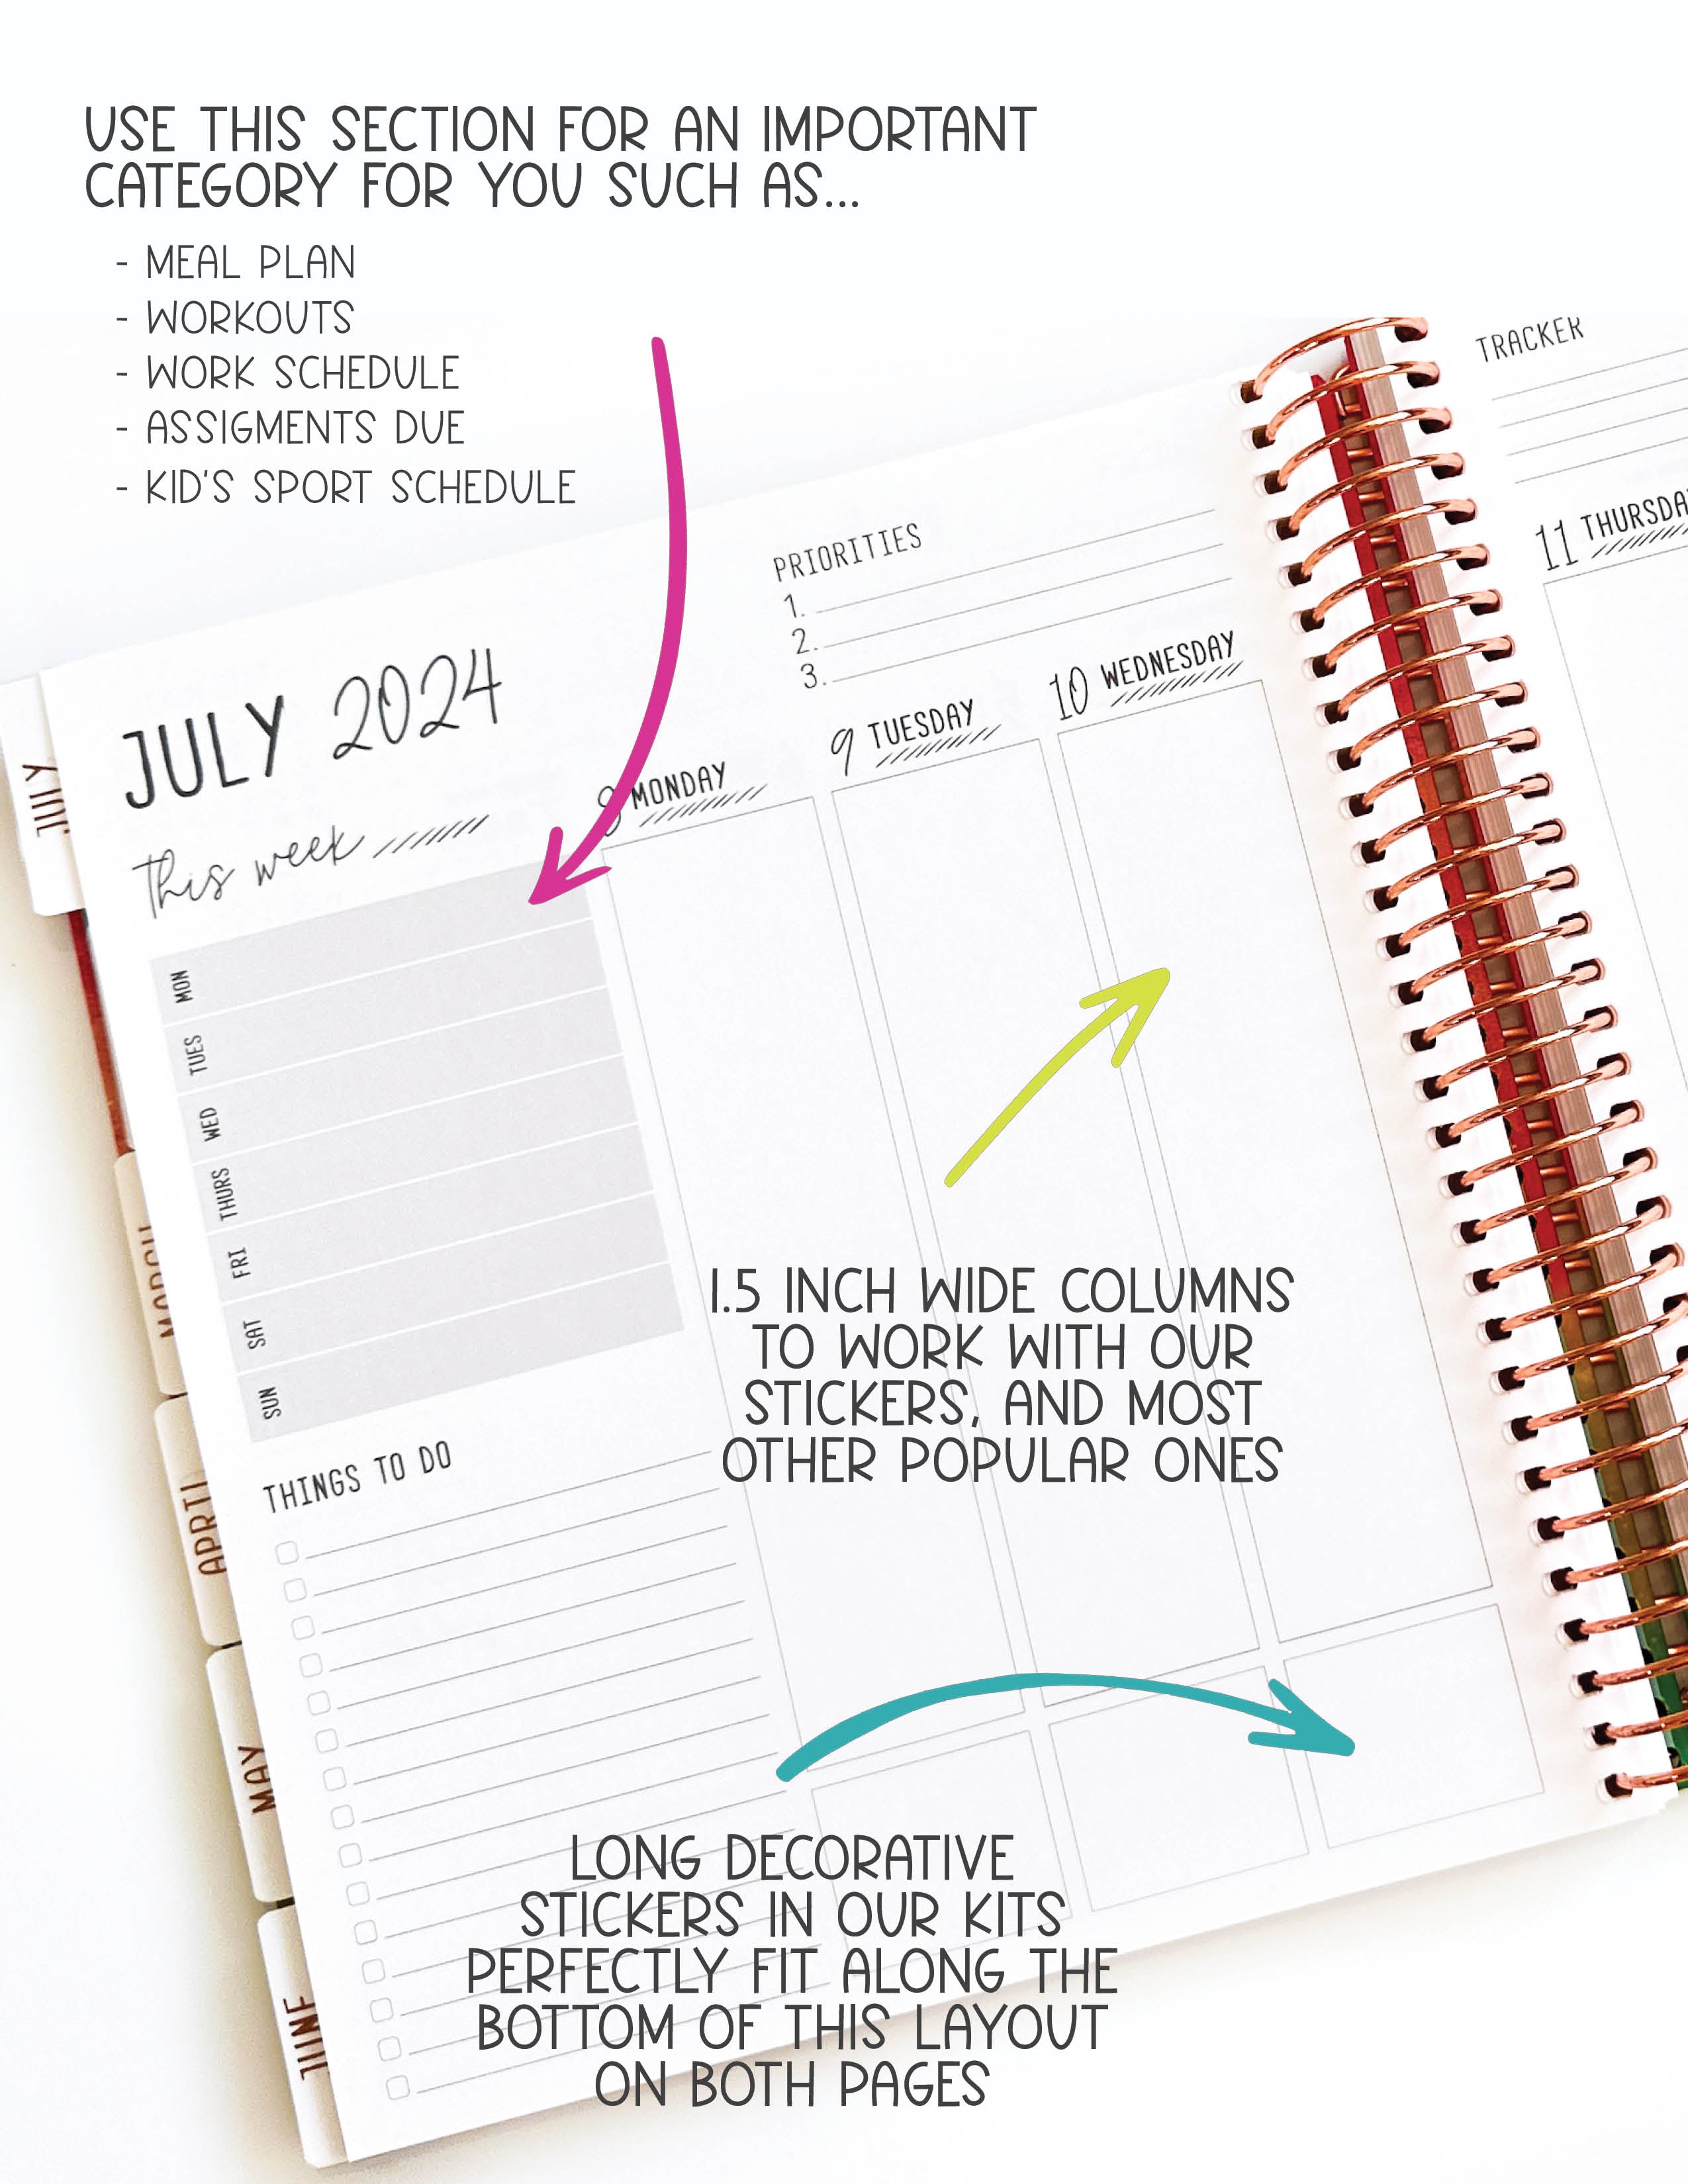 USE THIS SECTION FOR AN IMPORTANT
CATEGORY FOR YOU SUCH AS...
- MEAL PLAN
- WORKOUTS
- WORK SCHEDULE
- ASSIGMENTS DUE
- KID'S SPORT SCHEDULE
TRACKER
PRIORITIES
1.
2.
3.
JULY 2024
This week
8 MONDAY
9 TUESDAY
10 WEDNESDAY
11 THURSDA
MON
TUES
WED
THURS
FRI
SAT
SUN
THINGS TO DO
1.5 INCH WIDE COLUMNS
TO WORK WITH OUR
STICKERS, AND MOST
OTHER POPULAR ONES
LONG DECORATIVE
STICKERS IN OUR KITS
PERFECTLY FIT ALONG THE
BOTTOM OF THIS LAYOUT
ON BOTH PAGES
JULY
MARCH
APRIL
MAY
JUNE